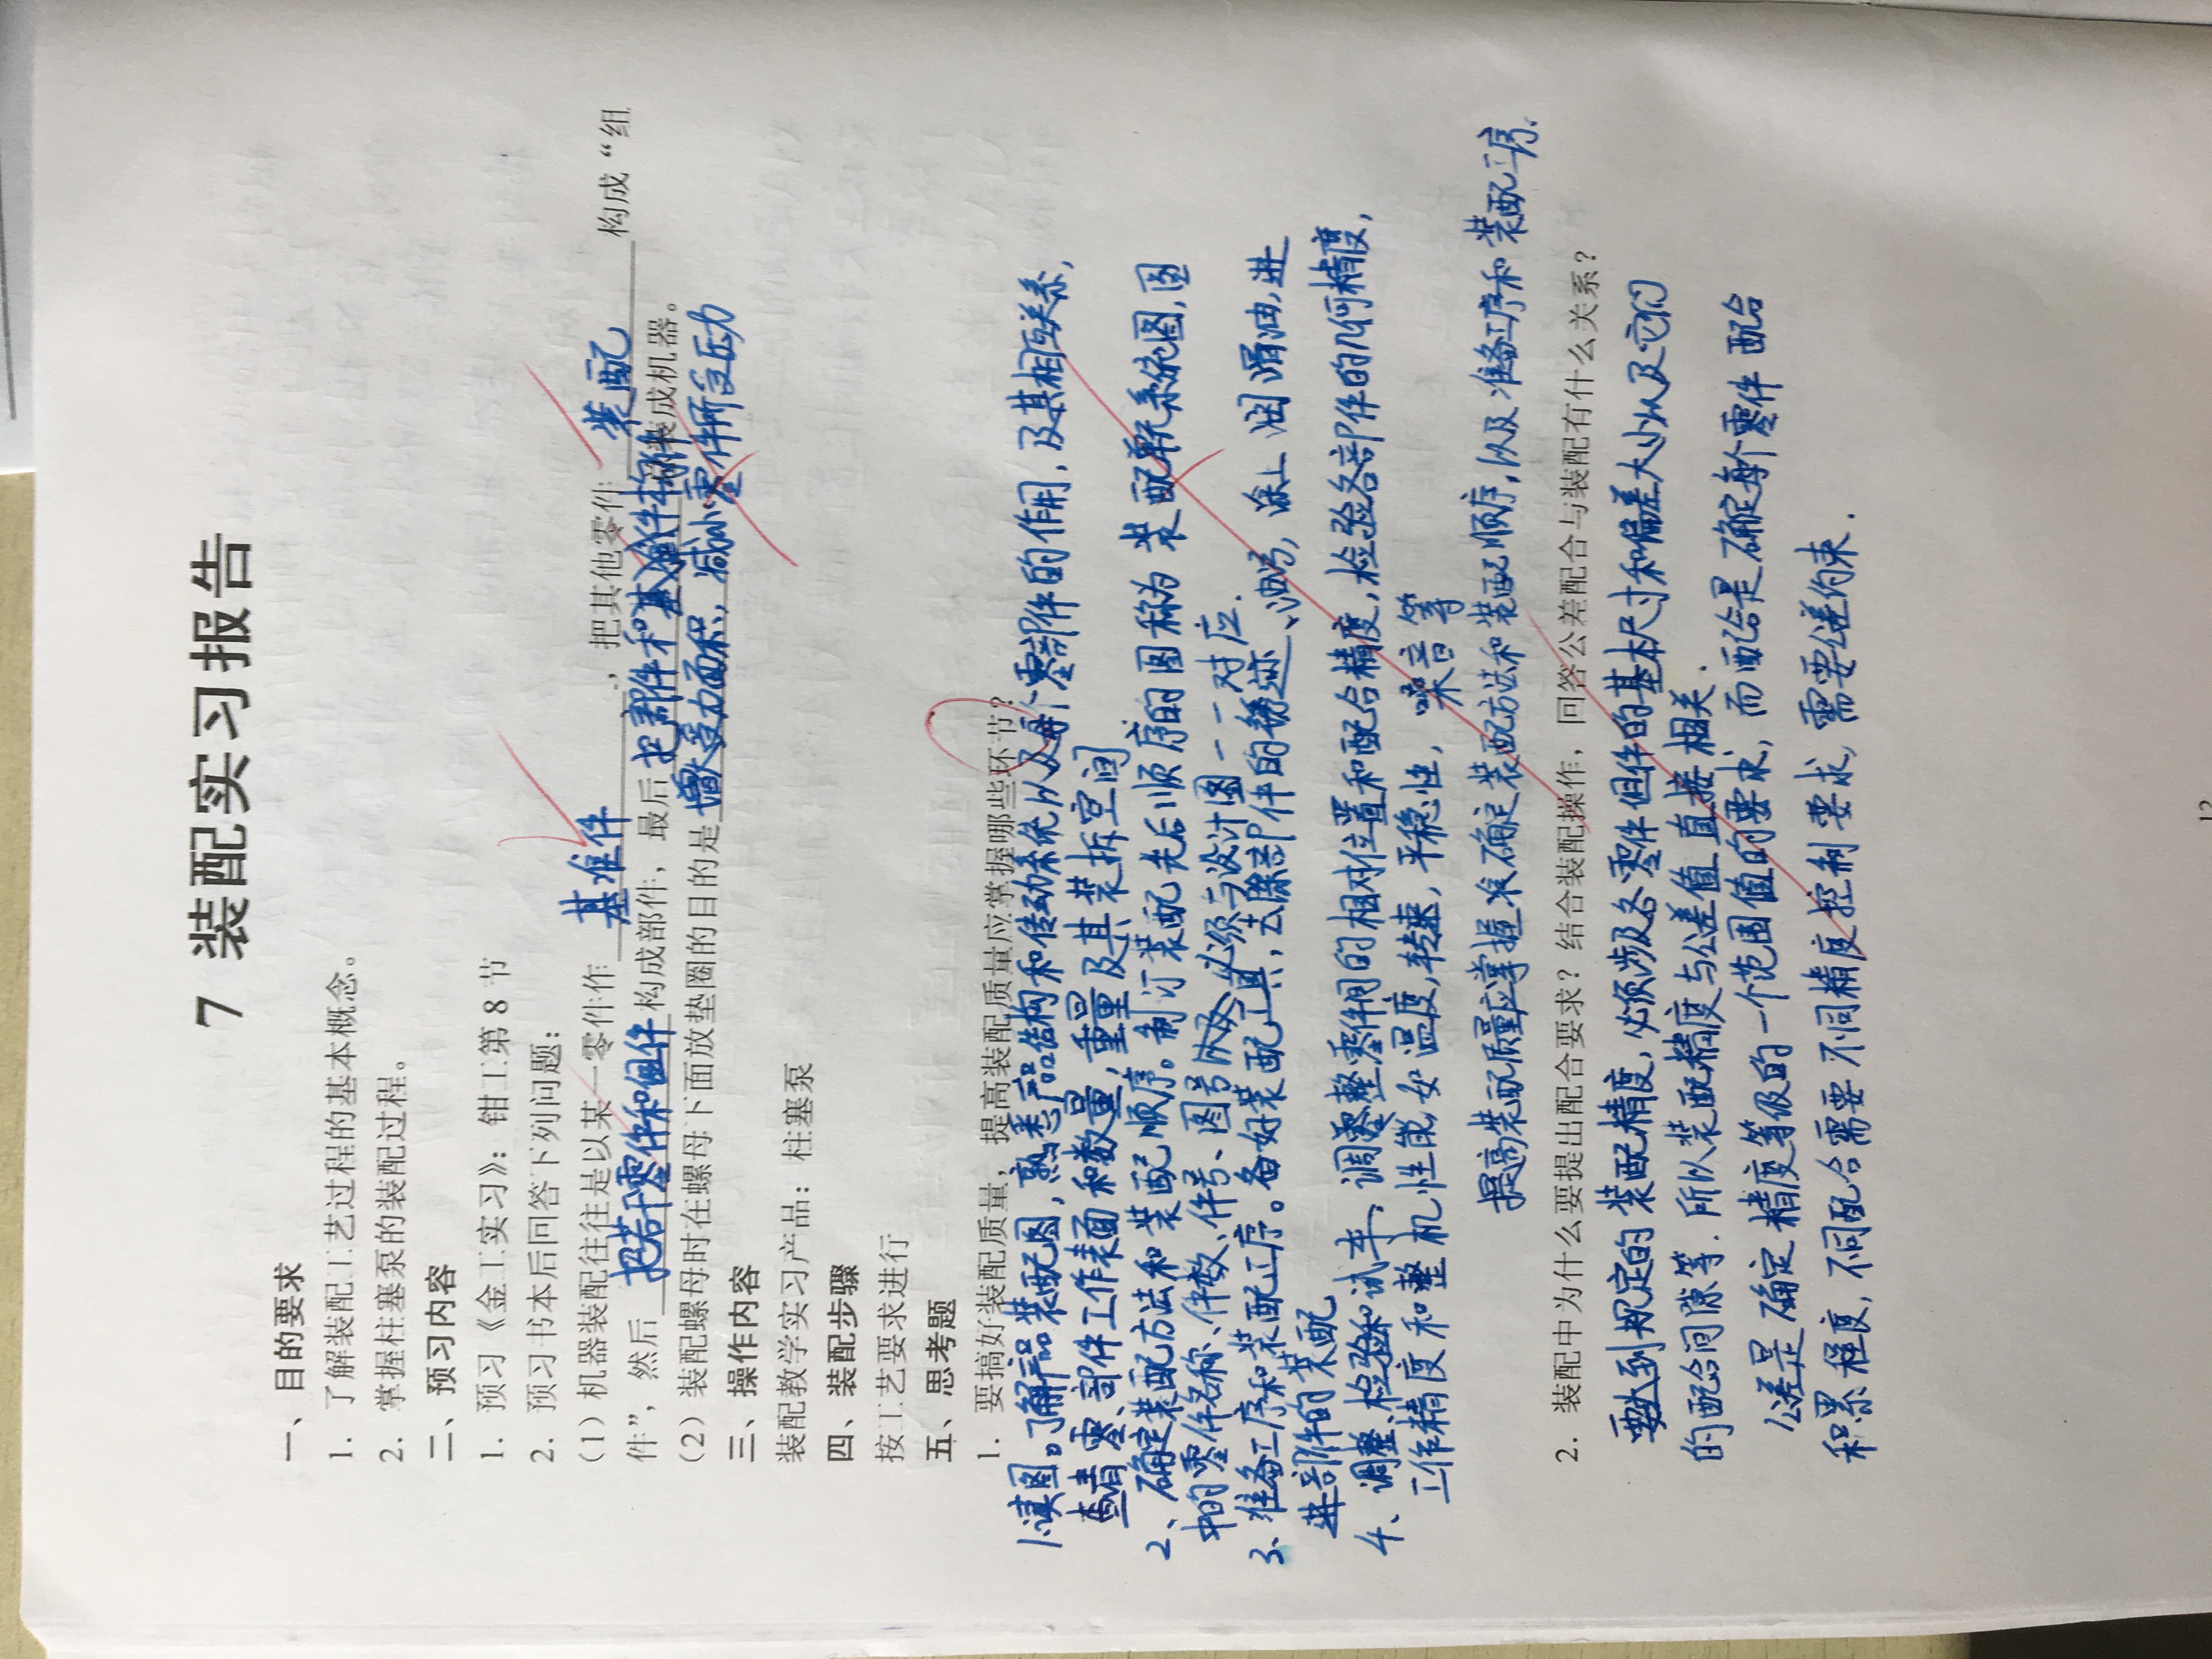 7 装配实习报告
一、目的要求
1. 了解装配工艺过程的基本概念。
2. 掌握柱塞泵的装配过程。
二、预习内容
1. 预习《金工实习》：钳工第 8 节
2. 预习书本后回答下列问题：
（1）机器装配往往是以某一零件作 基准件 ，把其他零件 装配 构成“组
件”，然后 把若干零件和组件 构成部件，最后 把部件和 装成机器。
（2）装配螺母时在螺母下面放垫圈的目的是 增大受力面积，减小零件所受压力
三、操作内容
装配教学实习产品：柱塞泵
四、装配步骤
按工艺要求进行
五、思考题
1. 要搞好装配质量，提高装配质量应掌握哪些环节？
1.读图。了解产品装配图，熟悉产品结构和传动系统以及每个零部件的作用，及其相互关系，
查清零、部件工作表面和数量，重量及其装拆空间
2、确定装配方法和装配顺序。制订装配先后顺序的图称为装配系统图，图
中的零件名称、件数、件号、图号 必须与设计图一一对应．
3、准备工序和装配工序。备好装配工具，去除部件的锈迹、油污，涂上润滑油，进
进部件的装配
4、调整、检验和试车、调整零件间的相对位置和配合精度，检验各部件的几何精度，
工作精度和整机性能，如温度，转速，平稳性，噪音等
提高装配质量应掌握准确定装配方法和装配顺序，以及准备工序和装配工序．
2. 装配中为什么要提出配合要求？结合装配操作，回答公差配合与装配有什么关系？
要达到规定的装配精度，必须涉及各零件组件的基本尺寸和偏差大小以及它们
的配合间隙等．所以装配精度与公差值直接相关．
公差是确定精度等级的一个范围值的要求，而配合是确定每个零件配合
和累程度，不同配合需要不同精度控制要求，需要公差约束．
12